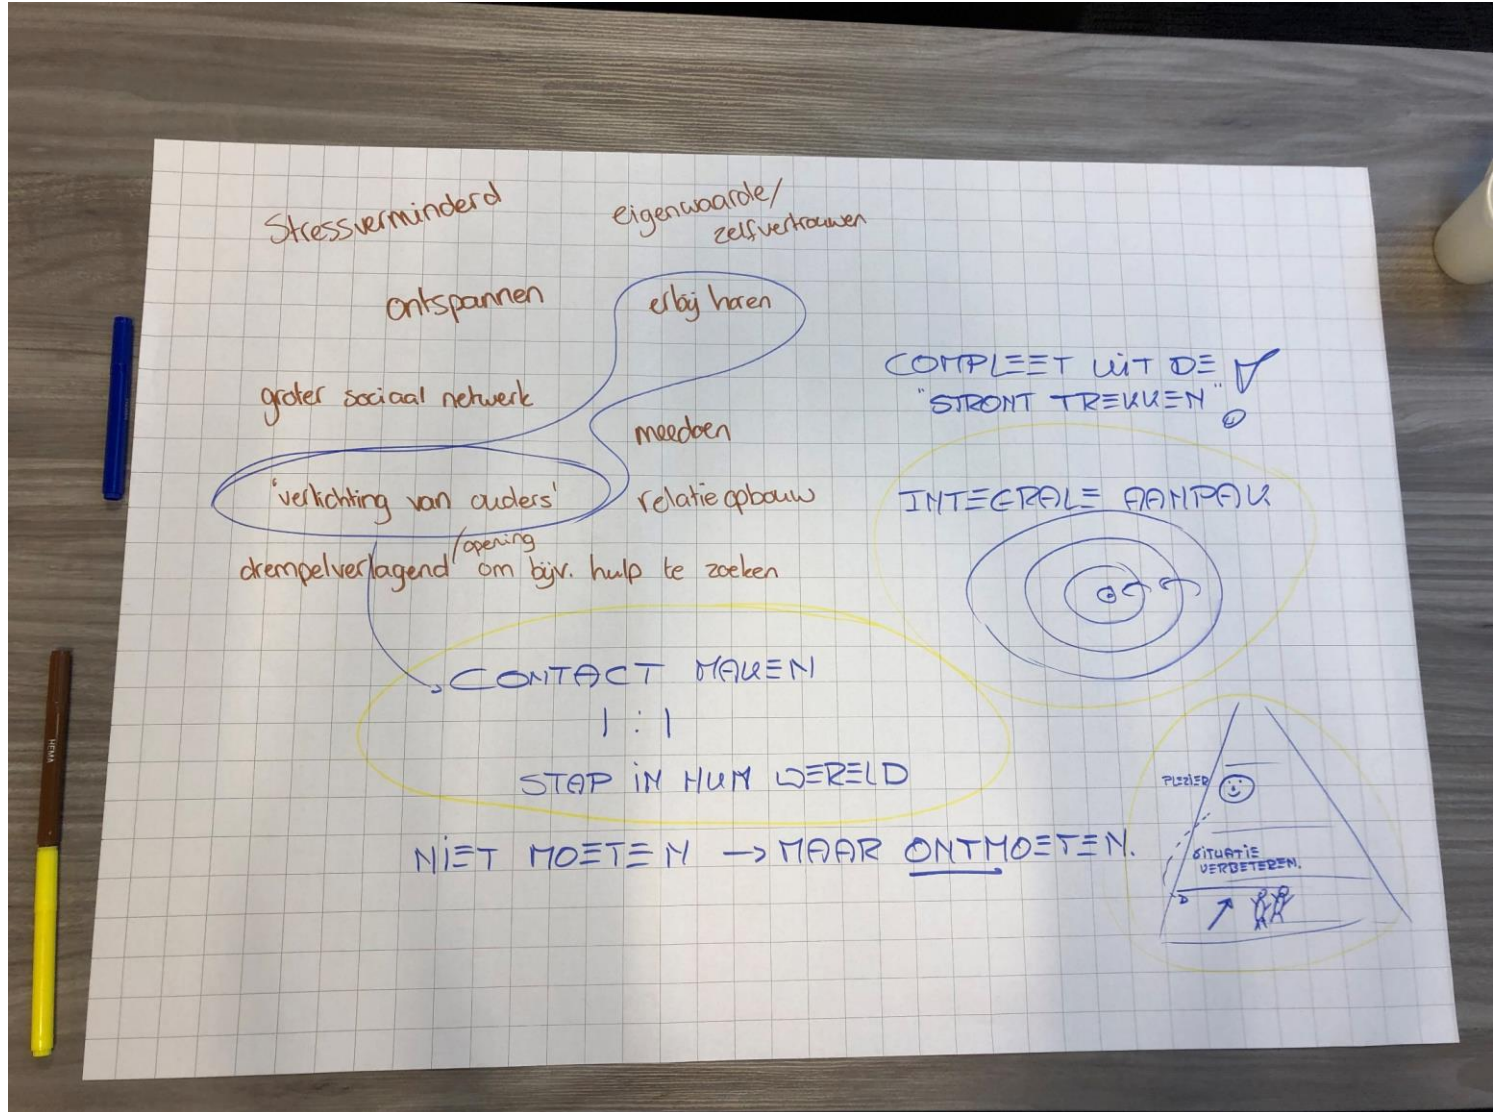 Stressverminderd
eigenwaarde/
zelfvertrouwen
ontspannen
erbij horen
groter sociaal netwerk
meedoen
'verlichting van ouders'
relatieopbouw
/opening
drempelverlagend om bijv. hulp te zoeken
COMPLEET UIT DE
"STRONT TREKKEN" !
INTEGRALE AANPAK
CONTACT MAKEN
1 : 1
STAP IN HUN WERELD
NIET MOETEN → MAAR ONTMOETEN.
PLEZIER
SITUATIE
VERBETEREN.
HEMA